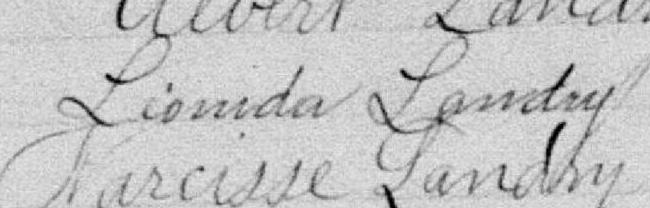 Albert Landry
Lionida Landry
Narcisse Landry